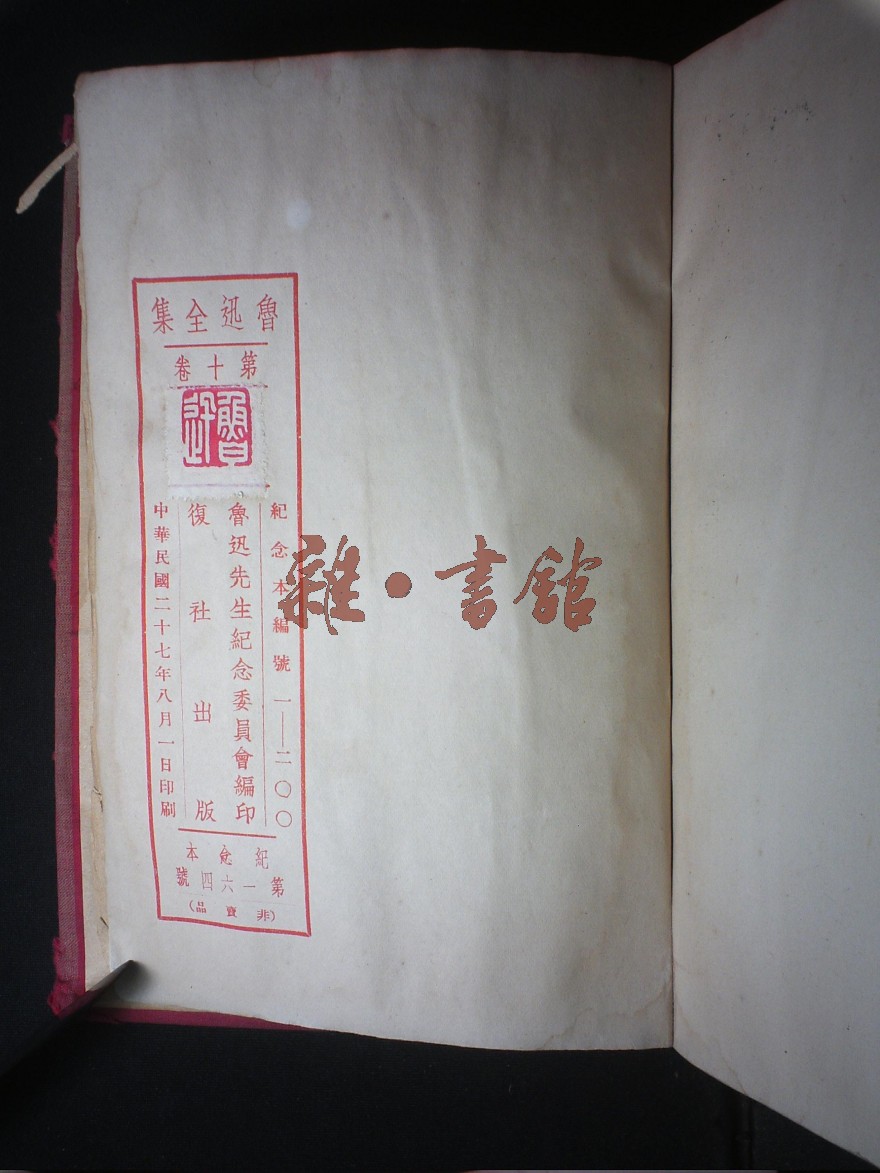 魯迅全集
第十卷
魯迅
紀念本編號 一——二〇〇
魯迅先生紀念委員會編印
復社出版
中華民國二十七年八月一日印刷
紀念本
第一六四號
(非賣品)
雜·書館